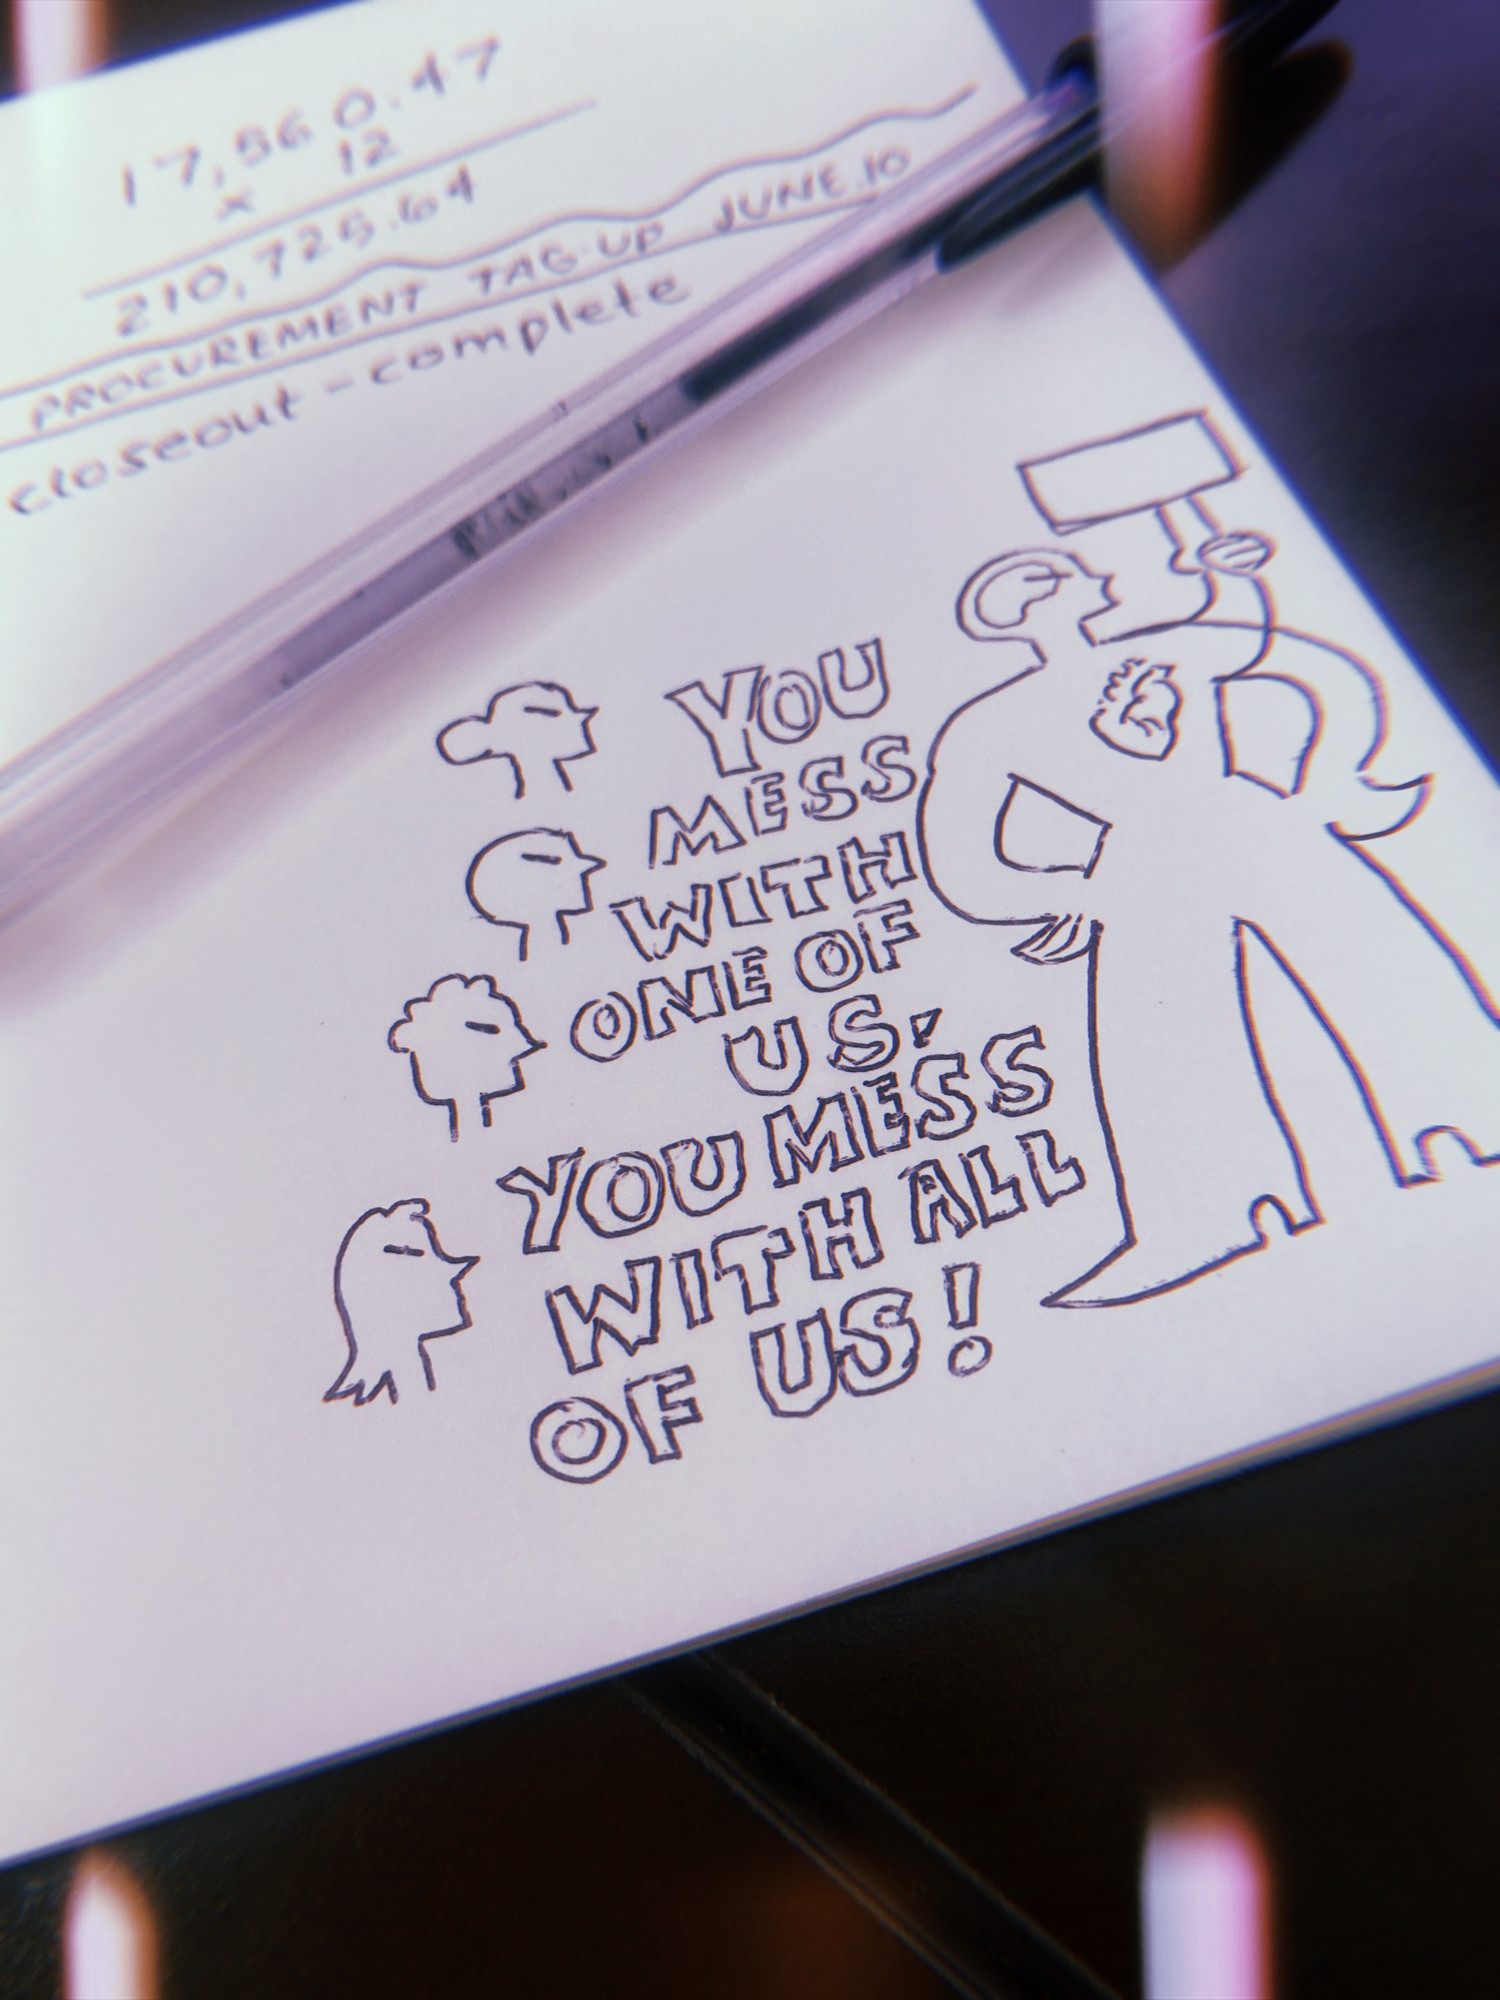 17,560.47
x 12
210,725.64
PROCUREMENT TAG-UP JUNE.10
closeout - complete
YOU
MESS
WITH
ONE OF
US,
YOU MESS
WITH ALL
OF US!